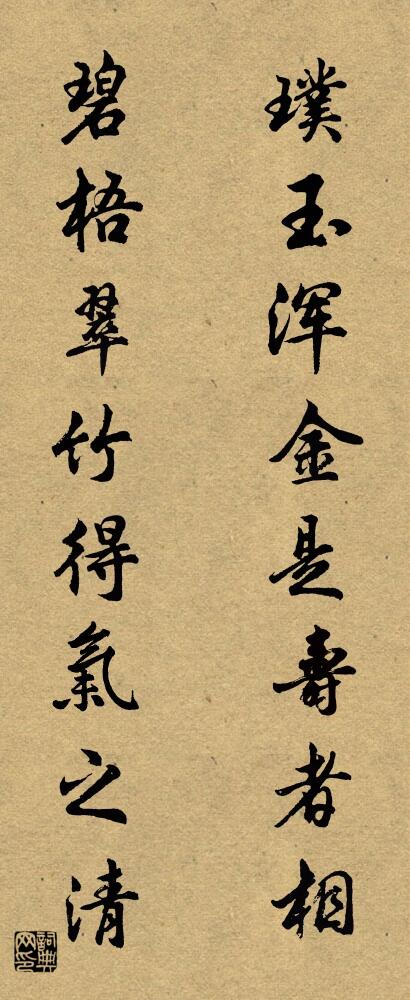 璞玉浑金是壽者相
碧梧翠竹得氣之清
詞典网印